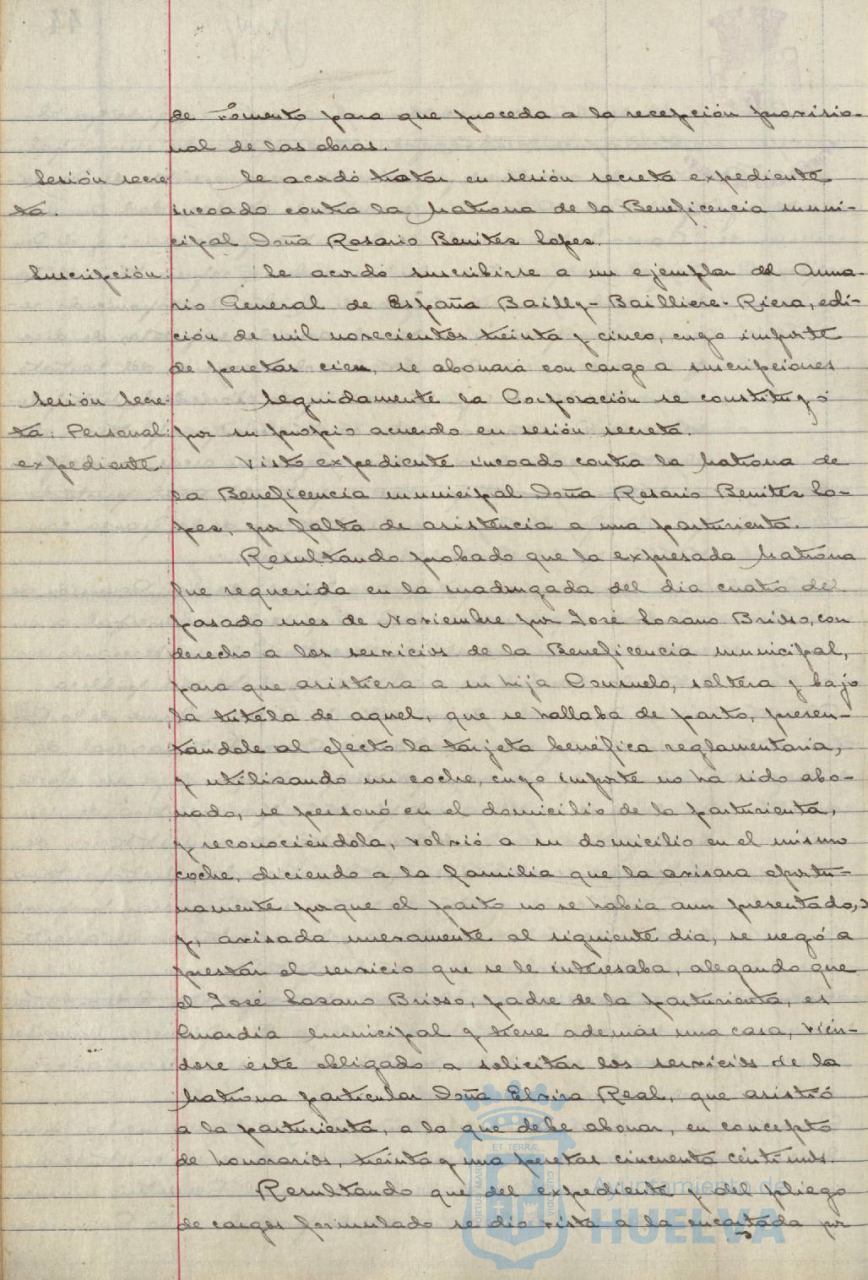 de Fomento para que proceda a la recepción provisio-
nal de las obras.
Sesión secre-
ta.
Se acordó tratar en sesión secreta expediente
incoado contra la Matrona de la Beneficencia muni-
cipal Doña Rosario Benites Lopes.
Suscripción.
Se acordó suscribirse a un ejemplar del Anua-
rio General de España Bailly-Bailliere-Riera, edi-
ción de mil novecientos treinta y cinco, cuyo importe
de pesetas cien, se abonará con cargo a suscripciones
Sesión secre-
ta: Personal:
expediente
Seguidamente la Corporación se constituyó
por su propio acuerdo en sesión secreta.
Visto expediente incoado contra la Matrona de
la Beneficencia municipal Doña Rosario Benites Lo-
pes, por falta de asistencia a una parturienta.
Resultando probado que la expresada Matrona
fue requerida en la madrugada del dia cuatro del
pasado mes de Noviembre por José Lozano Brisso, con
derecho a los servicios de la Beneficencia municipal,
para que asistiera a su hija Consuelo, soltera y bajo
la tutela de aquel, que se hallaba de parto, presen-
tándole al efecto la tarjeta benéfica reglamentaria,
y utilizando un coche, cuyo importe no ha sido abo-
nado, se personó en el domicilio de la parturienta,
y reconociéndola, volvió a su domicilio en el mismo
coche, diciendo a la familia que la avisara oportu-
namente porque el parto no se había aun presentado,
y, avisada nuevamente al siguiente dia, se negó a
prestar el servicio que se le interesaba, alegando que
el José Lozano Brisso, padre de la parturienta, es
Guardia municipal y tiene además una casa, vién-
dose éste obligado a solicitar los servicios de la
Matrona particular Doña Elvira Real, que asistió
a la parturienta, a la que debe abonar, en concepto
de honorarios, treinta y una pesetas cincuenta céntimos.
Resultando que del expediente y del pliego
de cargos formulado se dio vista a la encartada por
Ayuntamiento de
HUELVA